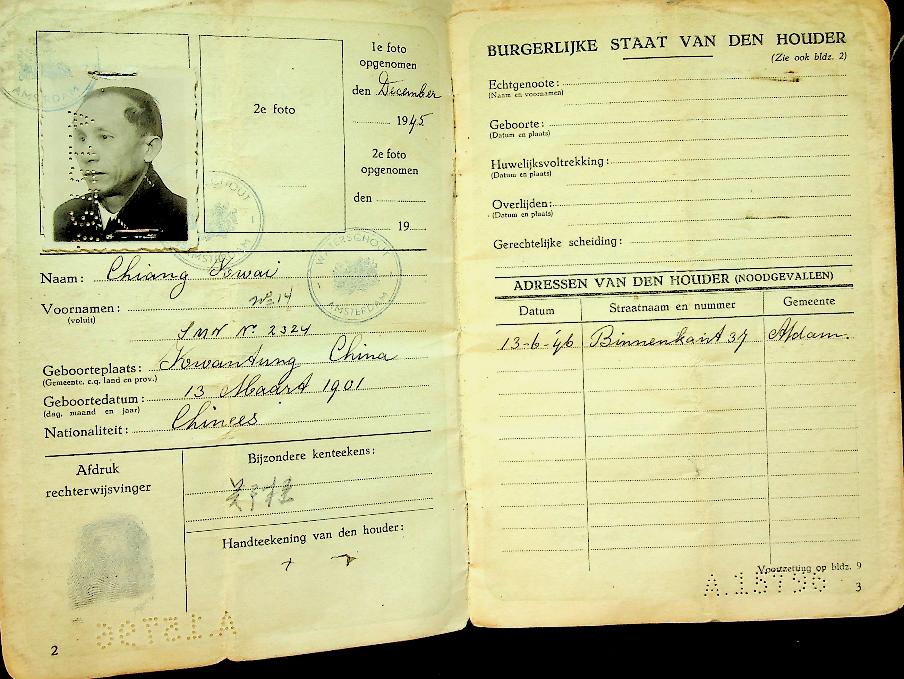 1e foto
opgenomen
den December
1945
2e foto
2e foto
opgenomen
den
19
AMSTERDAM
WATERSCHOUT
AMSTERDAM
Naam: Chiang Kwai
Voornamen: No 14
(voluit)
SMN No. 2324
Geboorteplaats: Kwantung China
(Gemeente, c.q. land en prov.)
Geboortedatum: 13 Maart 1901
(dag, maand en jaar)
Nationaliteit: Chinees
Afdruk
rechterwijsvinger
Bijzondere kenteekens:
Handteekening van den houder:
+
A.15796
2
BURGERLIJKE STAAT VAN DEN HOUDER
(Zie ook bldz. 2)
Echtgenoote:
(Naam en voornamen)
Geboorte:
(Datum en plaats)
Huwelijksvoltrekking:
(Datum en plaats)
Overlijden:
(Datum en plaats)
Gerechtelijke scheiding:
ADRESSEN VAN DEN HOUDER (NOODGEVALLEN)
Datum Straatnaam en nummer Gemeente
13-6-'46 Binnenkant 37 A'dam.
Voortzetting op bldz. 9
A.15796
3